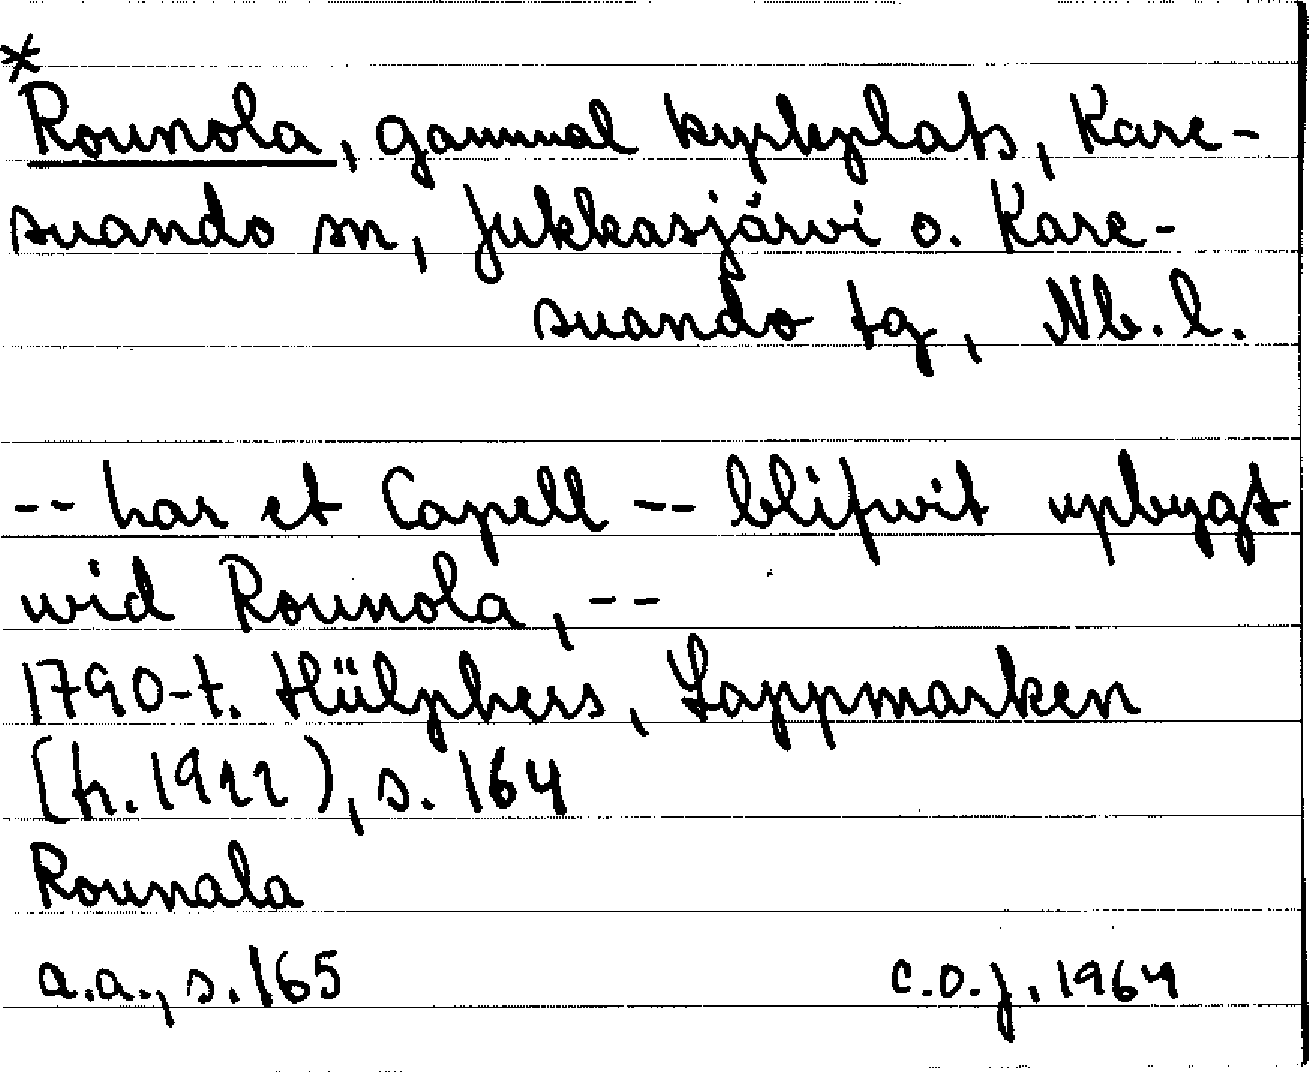 *
Rounola, gammal kyrkplats, Kare-
suando sn, Jukkasjärvi o. Kare-
suando tg, Nb. l.
-- har et Capell -- blifwit upbygt
wid Rounola, --
1790-t. Hülphers, Lappmarken
(tr. 1922), s. 164
Rounala
a.a., s. 165 C.O.J. 1964